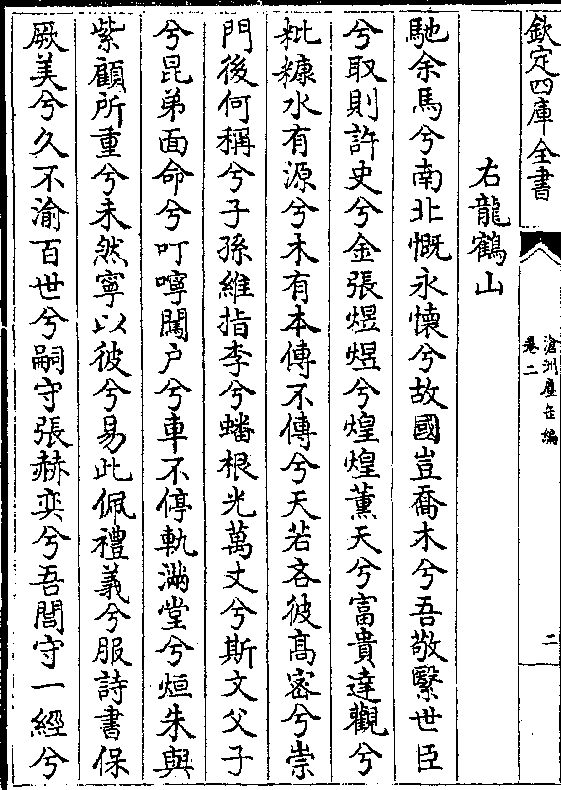 欽定四庫全書
滄洲塵缶編
卷二
二
右龍鶴山
馳余馬兮南北慨永懐兮故國豈喬木兮吾敬繄世臣
兮取則許史兮金張煜煜兮煌煌薰天兮富貴達觀兮
粃糠水有源兮木有本傳不傳兮天若吝彼髙密兮崇
門後何稱兮子孫維指李兮蟠根光萬丈兮斯文父子
兮昆弟面命兮叮嚀闔户兮車不停軌滿堂兮烜朱與
紫顧所重兮未然寧以彼兮易此佩禮義兮服詩書保
厥美兮久不渝百世兮嗣守張赫奕兮吾閭守一經兮